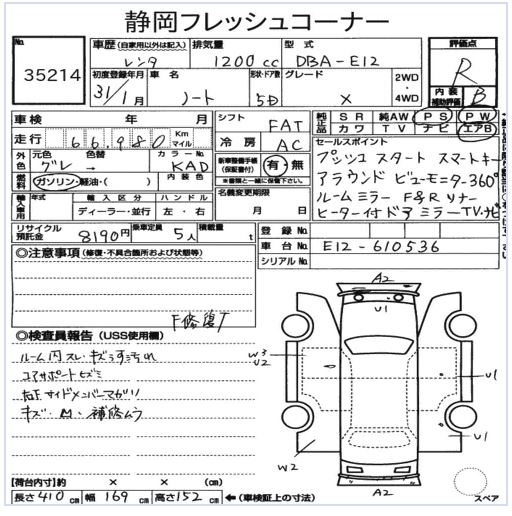 静岡フレッシュコーナー
No. 35214
車歴 (自家用以外は記入) レンタ
排気量 1200 cc
型式 DBA-E12
評価点 R
内装補助評価 B
初度登録年月 31/1月
車名 ノート
形状・ドア数 5D
グレード X
2WD・4WD
車検 年 月
走行 66,980 Km マイル
シフト FAT
冷房 AC
純正品 SR 純AW PS PW
カワ TV ナビ エアB
外色 元色 グレー 色替 → カラーNo. KAD 内装色
燃料 ガソリン・軽油・( )
新車整備手帳(保証書付) 有・無
※書類と一緒に保管して下さい。
セールスポイント
プッシュスタート スマートキー
アラウンドビューモニター360°
ルームミラー F&Rソナー
ヒーター付ドアミラー TV.ナビ
輸入車用 年式 輸入区分 ハンドル
ディーラー・並行 左・右
名義変更期限 月 日
リサイクル預託金 8190円
乗車定員 5人
積載量 t
登録No.
車台No. E12-610536
シリアルNo.
◎注意事項 (修復・不具合箇所および状態等)
F修復T
◎検査員報告 (USS使用欄)
ルーム内スレ・キズ・うすヨゴレ
コアサポートヒズミ
右F サイドメンバーマガリ
キズ・凹・補修ムラ
A2
U1
W3
U2
U1
U1
W2
A2
スペア
【荷台内寸】約 × × (cm)
長さ 410 cm 幅 169 cm 高さ 152 cm ←(車検証上の寸法)